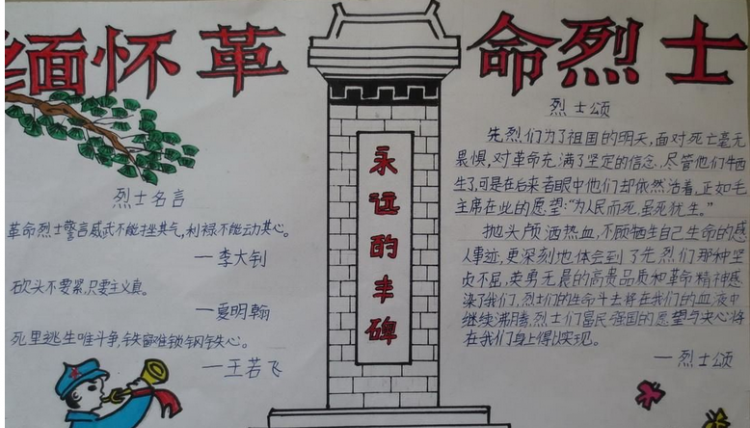 缅怀革命烈士
烈士名言
革命烈士警言威武不能挫其气,利禄不能动其心。
—李大钊
砍头不要紧,只要主义真。
—夏明翰
死里逃生唯斗争,铁窗难锁钢铁心。
—王若飞
永远的丰碑
烈士颂
先烈们为了祖国的明天,面对死亡毫无
畏惧,对革命充满了坚定的信念.尽管他们牺
生了,可是在后来者眼中他们却依然活着,正如毛
主席在此的愿望:“为人民而死,虽死犹生。”
抛头颅洒热血,不顾牺生自己生命的感
人事迹,更深刻也体会到了先烈们那种坚
贞不屈,英勇无畏的高贵品质和革命精神感
染了我们,烈士们的生命斗志将在我们的血液中
继续沸腾,烈士们富民强国的愿望与决心将
在我们身上得以实现。
—烈士颂